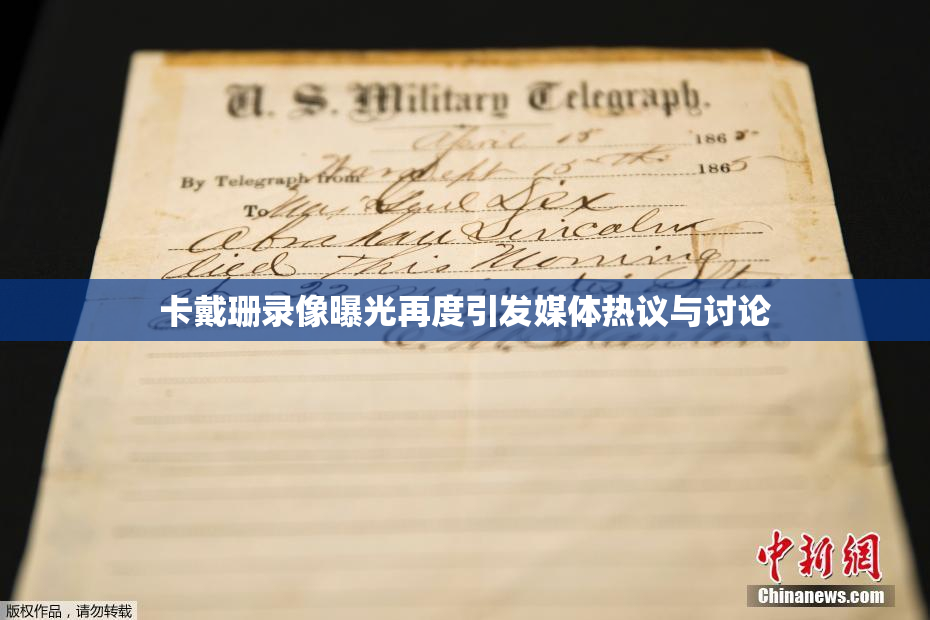 U. S. Military Telegraph.
April 15 1865
By Telegraph from War Dept 15th 1865
To Maj Genl Dix
Abraham Lincoln
died This Morning
at 22 minutes after
卡戴珊录像曝光再度引发媒体热议与讨论
E. M. Stanton
中新網
Chinanews.com
版权作品，请勿转载